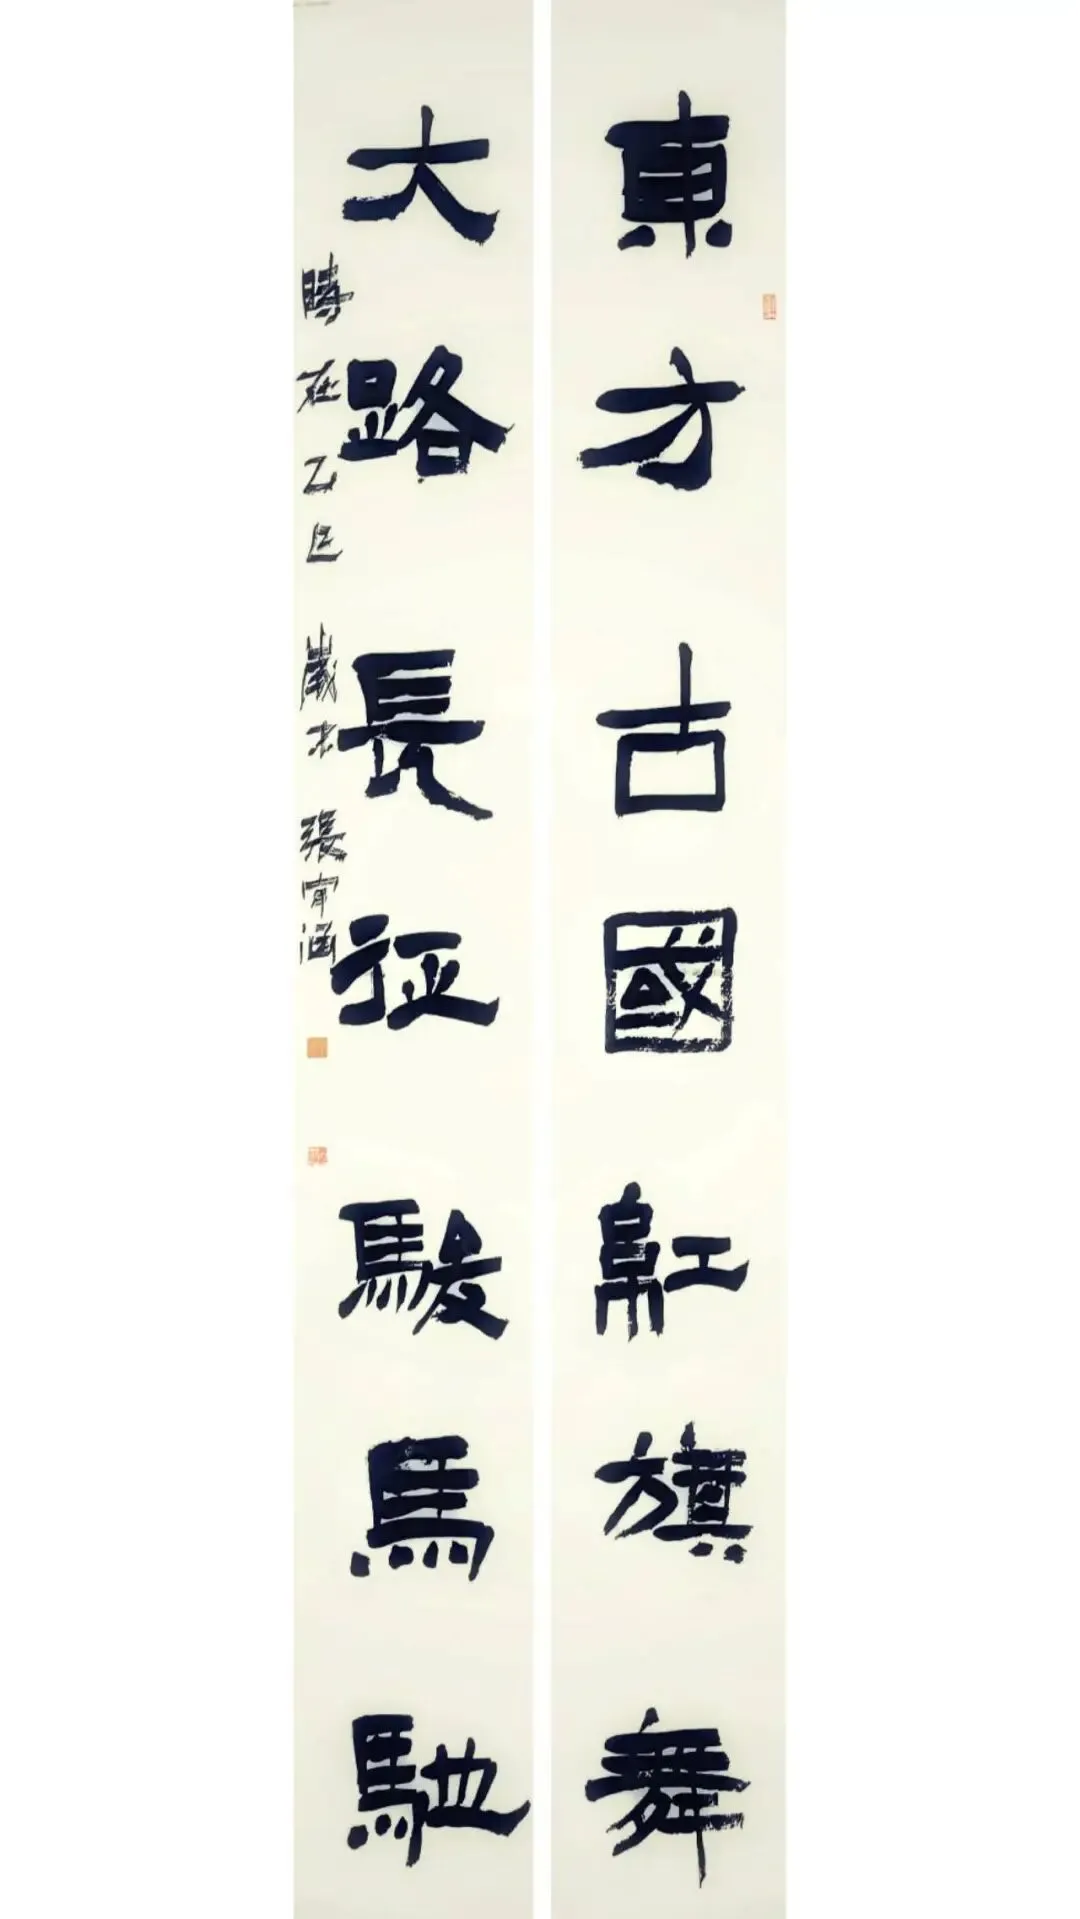 東方古國紅旗舞
大路長征駿馬馳
時在乙巳歲末張宇涵